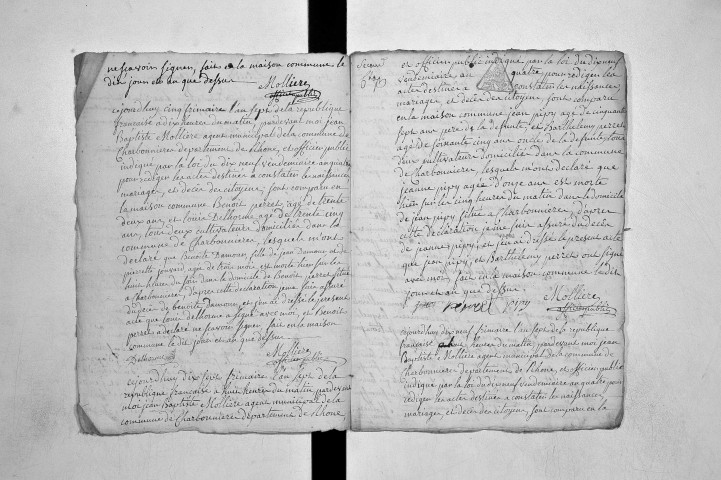 ne scavoir signer, fait en la maison commune le
dix jour et an que dessus
Mollière
officier public
cejourdhuy cinq frimaire l'an sept de la republique
française a dix heures du matin, pardevant moi jean
Baptiste Mollière agent municipal de la commune de
Charbonnière departement du rhone, et officier public
indiqué par la loi du dix neuf vendemiaire an quatre
pour rediger les actes destinés a constater les naissances
mariages, et decès des citoyens, sont comparu en
la maison commune Benoit perret, agé de trente
deux ans, et louis Delhorme agé de trente cinq
ans, tous deux cultivateurs domiciliés dans la
commune de Charbonnière, lesquels m'ont
declaré que Benoite Damour, fille de jean Damour et de
pierrette agée de trois mois, est morte hier sur les
huit heures du soir dans le domicile de Benoit perret situé
a Charbonnière, d'apres cette declaration je me suis assuré
du decès de benoite damour, et j'en ai dressé le present
acte que louis delhorme a signé avec moi, et Benoit
perret a declaré ne scavoir signer, fait en la maison
commune le dit jour et an que dessus
Delhorme Mollière
officier public
cejourdhuy dix sept frimaire l'an sept de la
republique française a huit heures du matin pardevant
moi jean Baptiste Mollière agent municipal de la
commune de Charbonnière departement du rhone,
et officier public indiqué par la loi du dix neuf
vendemiaire an quatre pour rediger les
actes destinés a constater les naissances,
mariages, et decès des citoyens, sont comparu
en la maison commune jean pipy agé de cinquante
sept ans pere de la defunte, et Barthelemy perret
agé de soixante cinq ans oncle de la defunte, tous
deux cultivateurs domiciliés dans la commune
de Charbonnière, lesquels m'ont declaré que
jeanne pipy agée d'onze ans est morte
hier sur les cinq heures du matin dans le domicile
de jean pipy situé a Charbonnière, d'apres
cette declaration je me suis assuré du decès
de jeanne pipy, et j'en ai dressé le present acte
que jean pipy, et Barthelemy perret ont signé
avec moi, fait en la maison commune le dit
jour et an que dessus
perret pipy Mollière
officier public
cejourdhuy dix neuf frimaire l'an sept de la republique
française a huit heures du matin, pardevant moi jean
Baptiste Mollière agent municipal de la commune de
Charbonnière departement du rhone, et officier public
indiqué par la loi du dix neuf vendemiaire an quatre pour
rediger les actes destinés a constater les naissances
mariages, et decès des citoyens, sont comparu en la